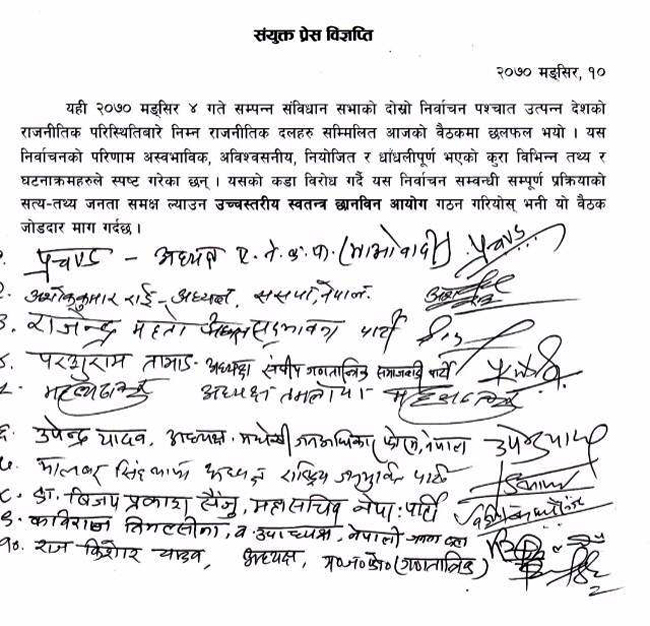 संयुक्त प्रेस विज्ञप्ति
२०७० मङ्सिर, १०
यही २०७० मङ्सिर ४ गते सम्पन्न संविधान सभाको दोस्रो निर्वाचन पश्चात उत्पन्न देशको
राजनीतिक परिस्थितिबारे निम्न राजनीतिक दलहरु सम्मिलित आजको बैठकमा छलफल भयो । यस
निर्वाचनको परिणाम अस्वभाविक, अविश्वसनीय, नियोजित र धाँधलीपूर्ण भएको कुरा विभिन्न तथ्य र
घटनाक्रमहरुले स्पष्ट गरेका छन् । यसको कडा विरोध गर्दै यस निर्वाचन सम्वन्धी सम्पूर्ण प्रक्रियाको
सत्य-तथ्य जनता समक्ष ल्याउन उच्चस्तरीय स्वतन्त्र छानविन आयोग गठन गरियोस् भनी यो बैठक
जोडदार माग गर्दछ ।
प्रचण्ड - अध्यक्ष ए. ने. क. पा. (माओवादी) प्रचण्ड
अशोककुमार राई - अध्यक्ष, ससपा, नेपाल
३. राजेन्द्र महतो अध्यक्ष सद्भावना पार्टी
परशुराम तामाङ - अध्यक्ष संघीय गणतान्त्रिक समाजवादी पार्टी
अध्यक्ष तमलोपा
६. उपेन्द्र यादव, अध्यक्ष - मधेशी जनअधिकार फोरम, नेपाल उपेन्द्र यादव
सिंह अध्यक्ष राष्ट्रिय पार्टी
८. डा. बिजय प्रकाश सैंजु, महासचिव नेपा: पार्टी
९. कविराज तिमिल्सीना, व. उपाध्यक्ष, नेपाली जनता दल
१०. राज किशोर यादव, अध्यक्ष, म०ज०फो० (गणतान्त्रिक)